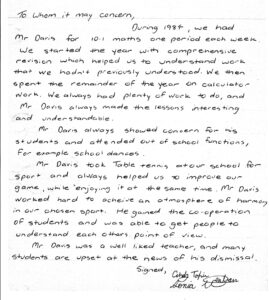 To whom it may concern,
During 1984, we had
Mr Davis for 10.1 maths one period each week.
We started the year with comprehensive
revision which helped us to understand work
that we hadn't previously understood. We then
spent the remainder of the year on calculator
work. We always had plenty of work to do, and
Mr Davis always made the lessons interesting
and understandable.
Mr Davis always showed concern for his
students and attended out of school functions,
for example school dances.
Mr Davis took Table tennis at our school for
sport and always helped us to improve our
game, while enjoying it at the same time. Mr Davis
worked hard to acheive an atmosphere of harmony
in our chosen sport. He gained the co-operation
of students and was able to get people to
understand each others point of view.
Mr Davis was a well liked teacher, and many
students are upset at the news of his dismissal.
Signed,